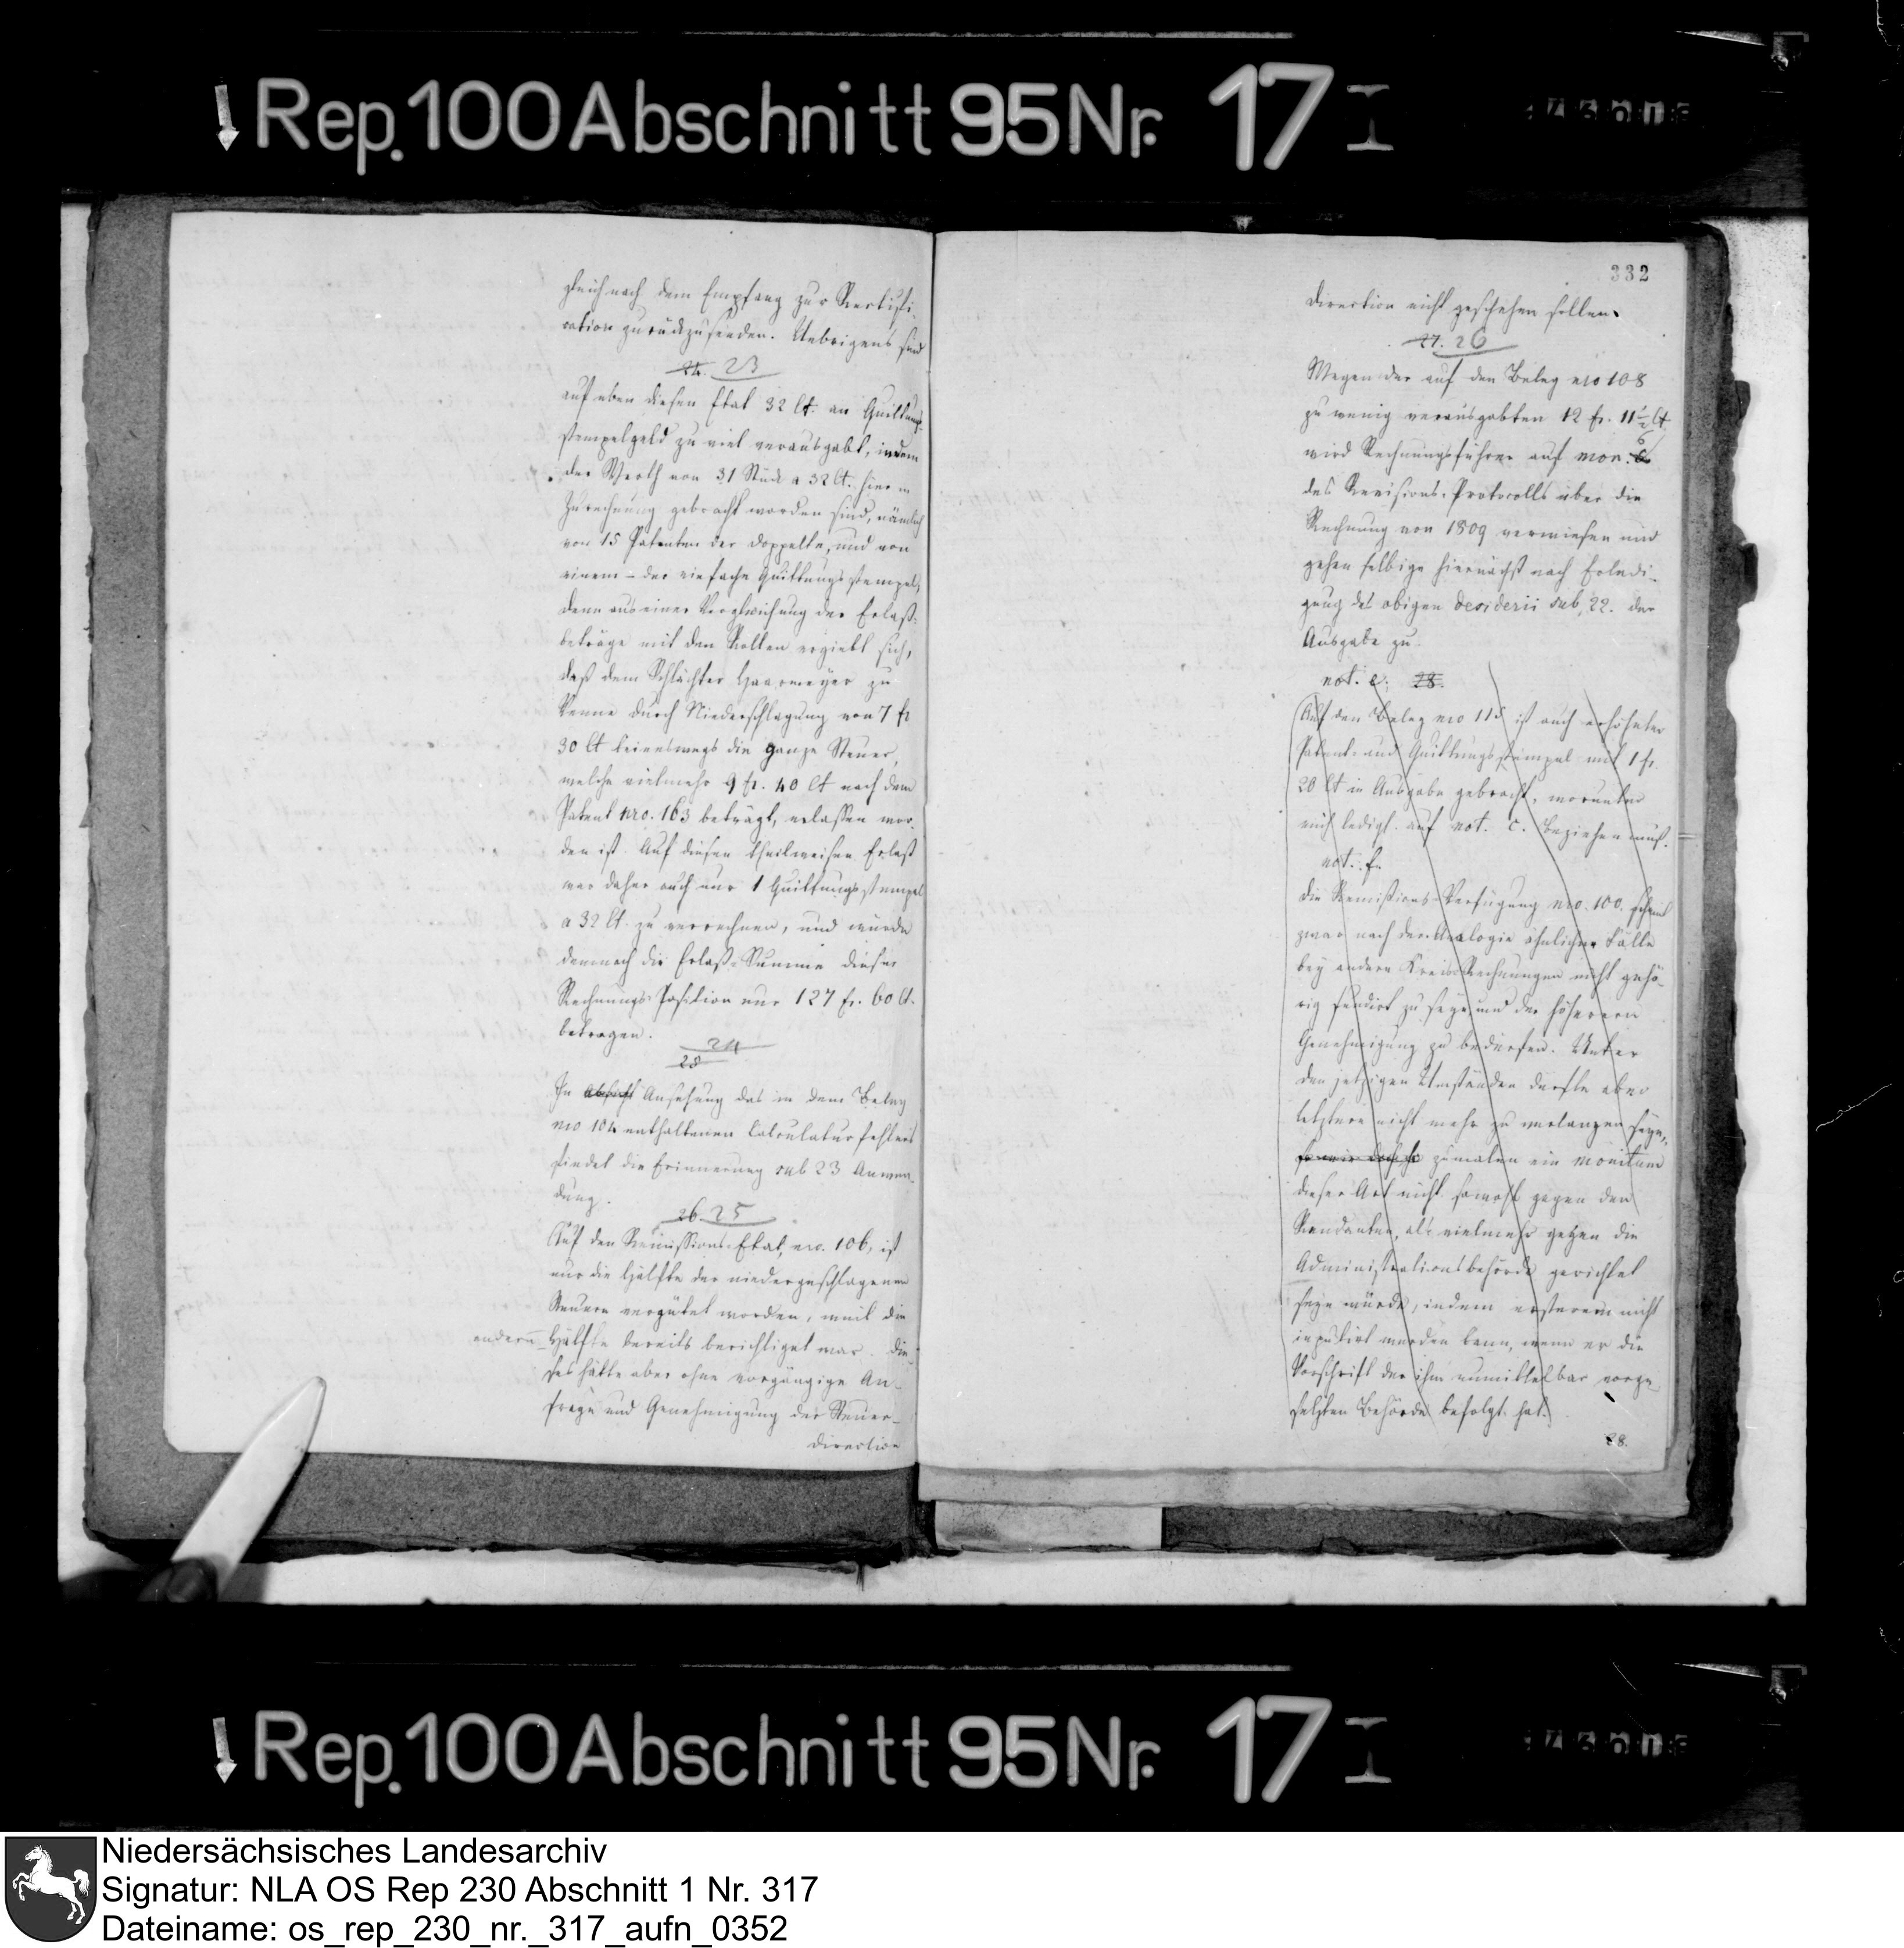 ↓ Rep. 100 Abschnitt 95 Nr. 17 I
gleich nach dem Empfang zur Rectifi-
cation zurückzusenden. Uebrigens sind
24. 23
auf eben diesen Etat 32 Ct. an Quittungs-
stempelgeld zu viel verausgabt, indem
der Werth von 31 Stück a 32 Ct. hier in
Zurechnung gebracht worden sind, nämlich
von 15 Patenten der doppelte, und von
einem - der einfache Quittungsstempel,
denn aus einer Vergleichung der Erlaß-
beträge mit den Rollen ergiebt sich,
daß dem Schlächter Haarmeyer zu
Venne durch Niederschlagung von 7 fr
30 Ct keineswegs die ganze Steuer,
welche vielmehr 9 fr. 40 Ct nach dem
Patent nro. 163 beträgt, erlassen wor-
den ist. Auf diesen theilweisen Erlaß
war daher auch nur 1 Quittungsstempel
a 32 Ct. zu verrechnen, und würde
demnach die Erlaß-Summe dieser
Rechnungs-Position nur 127 fr. 60 Ct.
betragen.
24
25
In Absicht Ansehung des in dem Beleg
nro 104 enthaltenen Calculaturfehlers
findet die Erinnerung sub 23 Anwen-
dung.
26. 25
Auf den Remissions-Etat, nro. 106, ist
nur die Hälfte der niedergeschlagenen
Steuern vergütet worden, weil die
andern Hälfte bereits berichtiget war. Die-
ses hätte aber ohne vorgängige An-
frage und Genehmigung der Steuer-
direction
332
direction nicht geschehen sollen.
27. 26
Wegen der auf den Beleg nro 108
zu wenig verausgabten 12 fr. 11½ Ct
wird Rechnungsführer auf mon. 6
des Revisions-Protocolls über die
Rechnung von 1809 verwiesen und
gehen selbige hiernächst nach Erledi-
gung des obigen desiderii sub, 22. der
Ausgabe zu.
not. e. 28.
Auf den Beleg nro 115 ist auch erhöhter
Patent- und Quittungsstempel mit 1 fr.
20 Ct in Ausgabe gebracht, worunter
mich ledigl. auf not. c. beziehen muß.
not. f.
Die Remissions-Verfügung nro. 100. scheint
zwar nach der Analogie ähnlicher Fälle
bey andern Kreis-Rechnungen nicht gehö-
rig fundirt zu seyn und der höheren
Genehmigung zu bedürfen. Unter
den jetzigen Umständen dürfte aber
letztere nicht mehr zu verlangen seyn,
zumalen ein monitum
dieser Art nicht sowohl gegen den
Rendanten, als vielmehr gegen die
Administrationsbehörde gerichtet
seyn würde, indem ersterem nicht
inputirt werden kann, wenn er die
Vorschrift der ihm unmittelbar vorge-
setzten Behörde befolgt hat.
28.
↓ Rep. 100 Abschnitt 95 Nr. 17 I
Niedersächsisches Landesarchiv
Signatur: NLA OS Rep 230 Abschnitt 1 Nr. 317
Dateiname: os_rep_230_nr._317_aufn_0352